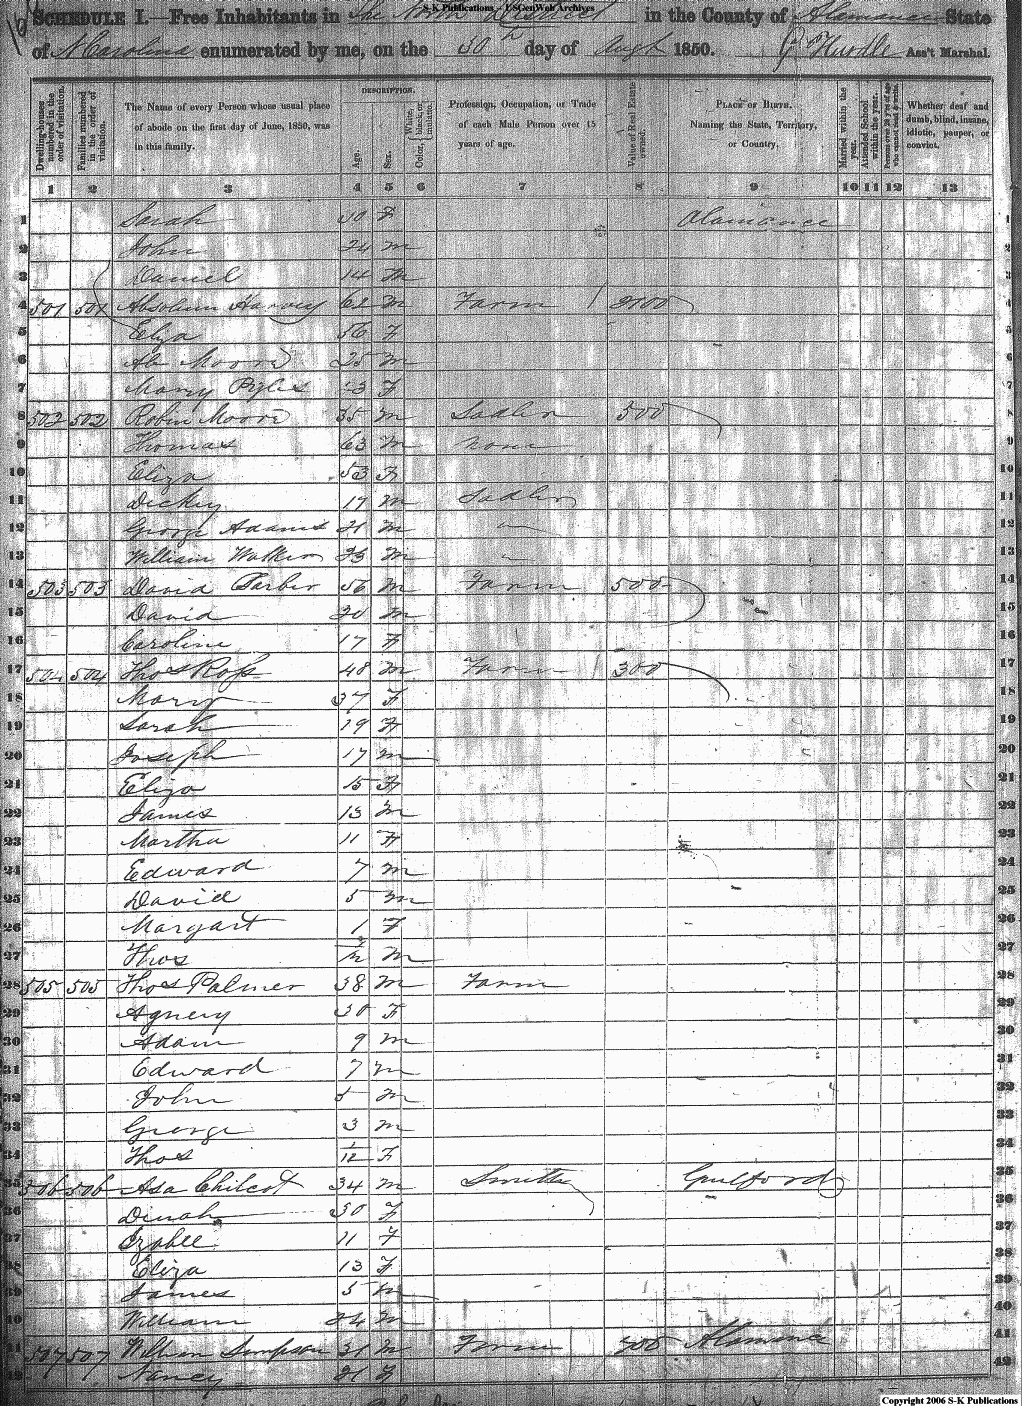 S-K Publications - USGenWeb Archives
SCHEDULE I.—Free Inhabitants in The North District in the County of Alamance State
of N Carolina enumerated by me, on the 30th day of Augt 1850. Hurdle Ass't Marshal.
Dwelling-houses numbered in the order of visitation.
Families numbered in the order of visitation.
The Name of every Person whose usual place of abode on the first day of June, 1850, was in this family.
DESCRIPTION.
Age.
Sex.
Color, White, black, or mulatto.
Profession, Occupation, or Trade of each Male Person over 15 years of age.
Value of Real Estate owned.
PLACE OF BIRTH. Naming the State, Territory, or Country.
Married within the year.
Attended School within the year.
Persons over 20 y'rs of age who cannot read & write.
Whether deaf and dumb, blind, insane, idiotic, pauper, or convict.
1 2 3 4 5 6 7 8 9 10 11 12 13
1 Sarah F Alamance
2 John 24 m
3 Daniel 14 m
4 501 501 Absolum Harvey 62 m Farm 2100
5 Eliza 56 F
6 Ab Moore 25 m
7 Mary F
8 502 502 Robin Moore 35 m Sadler 500
9 Thomas 63 m none
10 Eliza 53 F
11 Dickey 17 m Sadler
12 George Adams 21 m "
13 William Walker 23 m "
14 503 503 David Barber 56 m Farm 500
15 David 20 m
16 Caroline 17 F
17 504 504 Thos Ross 48 m Farm 300
18 Mary 37 F
19 Sarah 19 F
20 Joseph 17 m
21 Eliza 15 F
22 James 13 m
23 Martha 11 F
24 Edward 7 m
25 David 5 m
26 Margart 1 F
27 Thos m
28 505 505 Thos Palmer 38 m Farm
29 Agnery 30 F
30 Adam 9 m
31 Edward 7 m
32 John 5 m
33 George 3 m
34 Thos 1/12 F
35 506 506 Asa Chilcot 34 m Smith Guilford
36 Dinah 30 F
37 Izabell 11 F
38 Eliza 13 F
39 James 5 m
40 William 24 m
41 507 507 William Simpson 31 m Farm 300 Alamance
42 Nancy 21 F
Copyright 2006 S-K Publications